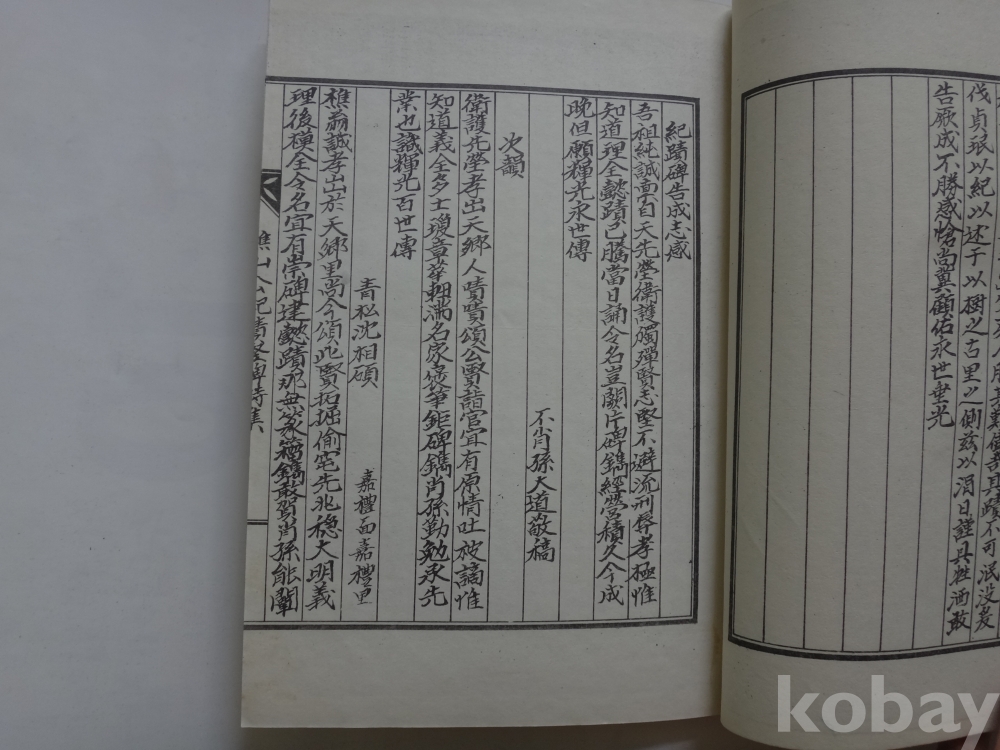 伐貞珉以紀以述于以樹之古里之側玆以涓日謹具牲酒敢
告厥成不勝感愴尚冀顧佑永世重光
紀蹟碑告成志感
吾祖純誠亶自天先塋衛護獨殫賢志堅不避流刑辱孝極惟
知道理全懿蹟已騰當日誦令名豈關片碑鐫經營積久今成
晩但願輝光永世傳
不肖孫大道敬稿
次韻
衛護先塋孝出天鄉人嘖嘖頌公賢詣官宜有原情吐被謫惟
知道義全多士瓊章華軸滿名家褒筆鉅碑鐫肖孫勤勉承先
業也識輝光百世傳
青松沈相碩
嘉禮面嘉禮里
樵翁誠孝出於天鄉里尚今頌此賢拓掘偷宅先兆穩大明義
理後模全令名宜有崇碑建懿蹟那無篆籀鐫敢賀肖孫能闡
樵山公紀蹟
詩集
kobay